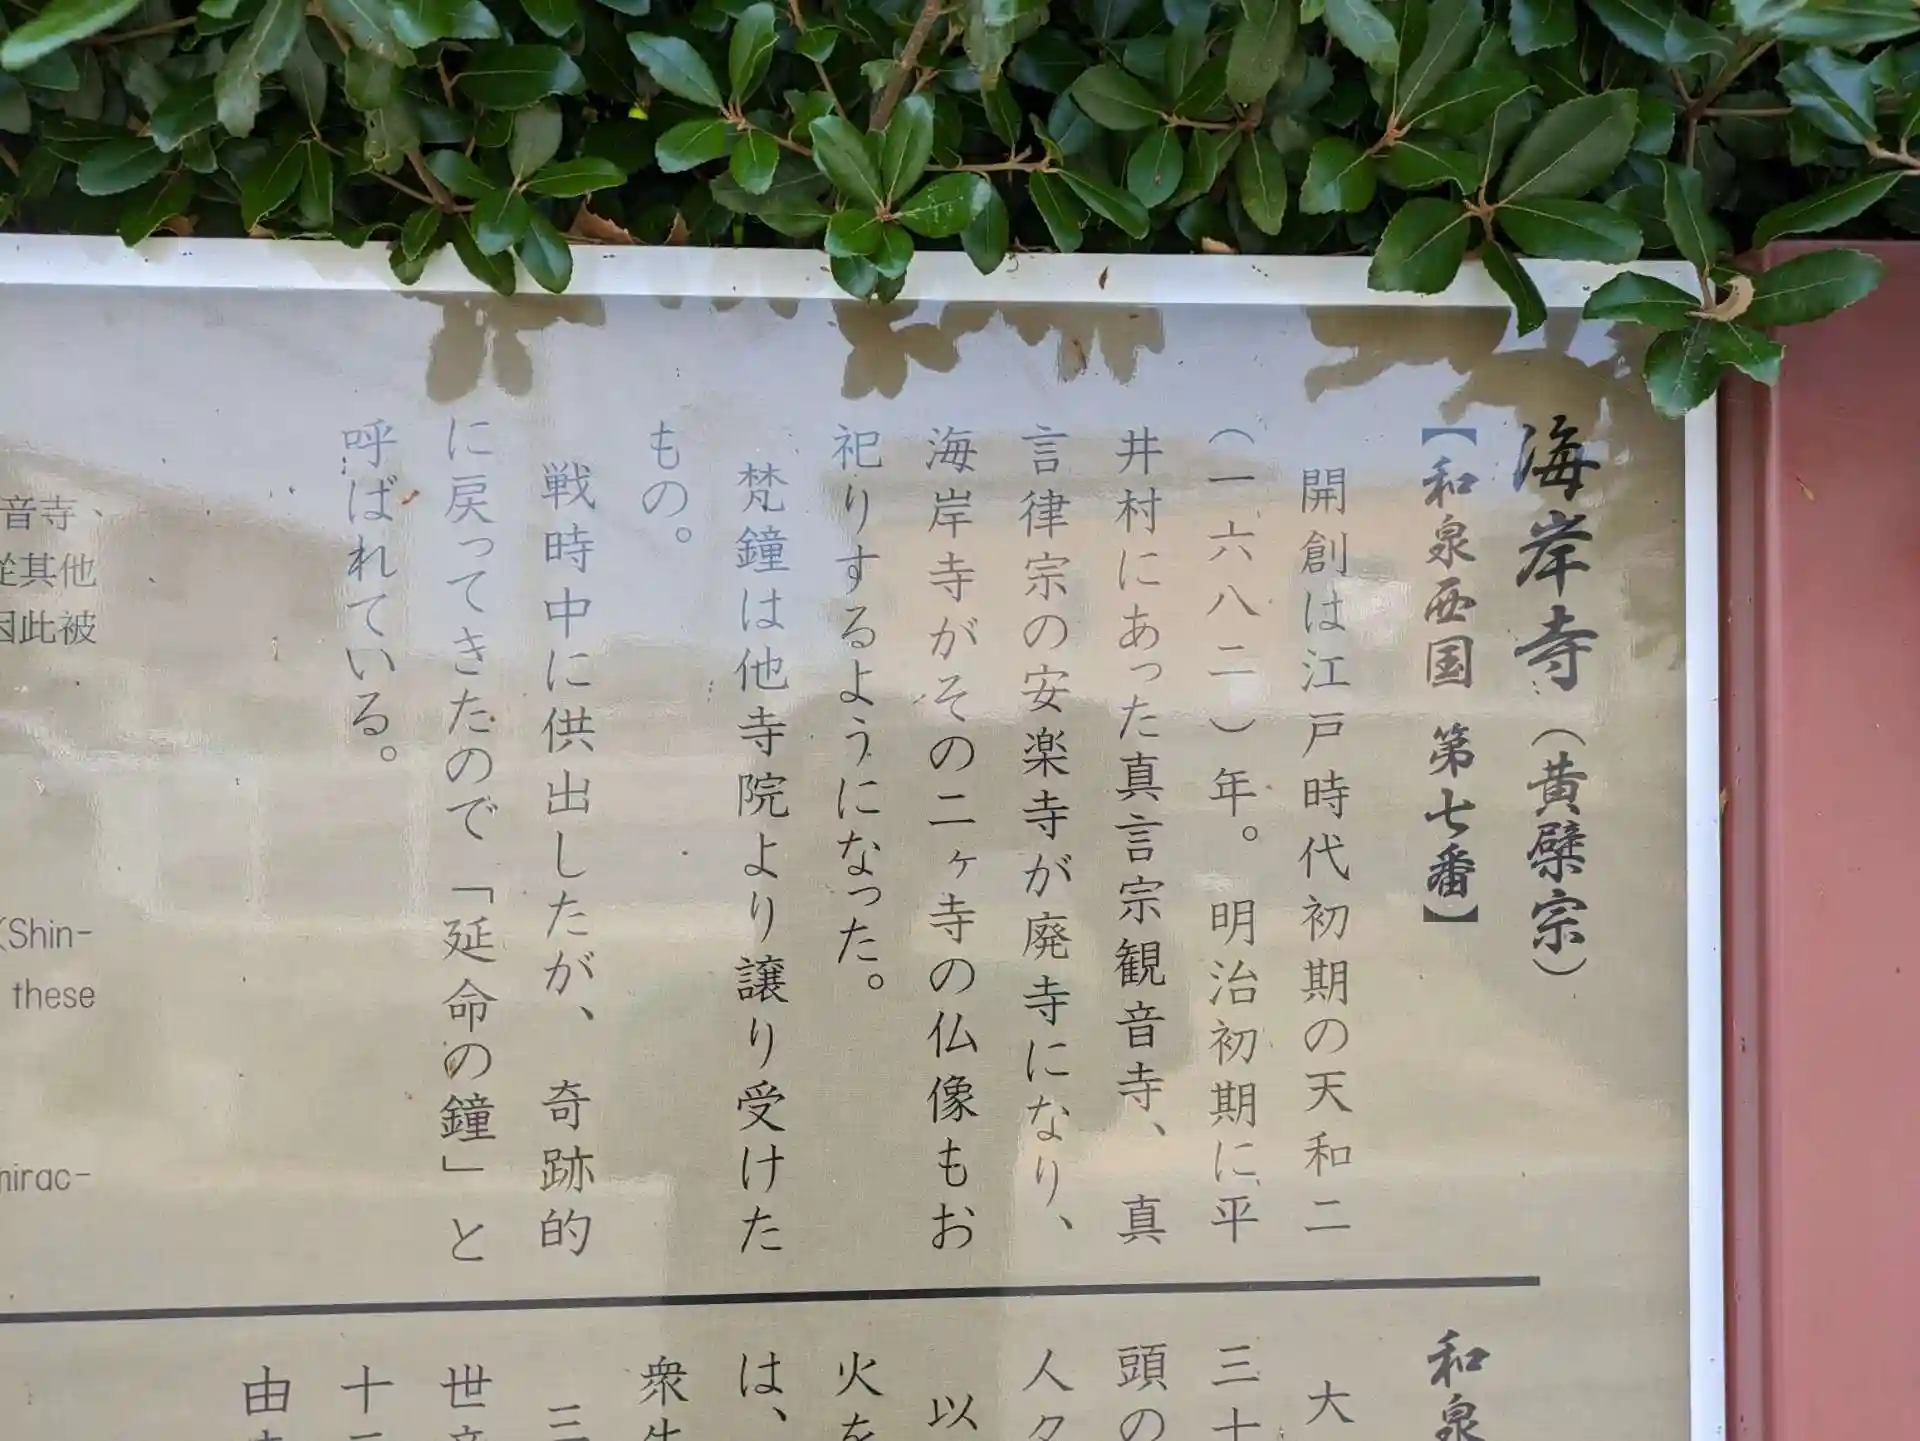 海岸寺(黄檗宗)
【和泉西国 第七番】
開創は江戸時代初期の天和二
(一六八二)年。明治初期に平
井村にあった真言宗観音寺、真
言律宗の安楽寺が廃寺になり、
海岸寺がその二ヶ寺の仏像もお
祀りするようになった。
梵鐘は他寺院より譲り受けた
もの。
戦時中に供出したが、奇跡的
に戻ってきたので「延命の鐘」と
呼ばれている。
音寺、
從其他
因此被
(Shin-
these
mirac-
和泉
大
三十
頭の
人々
以
火を
は、
衆生
三
世音
十
由